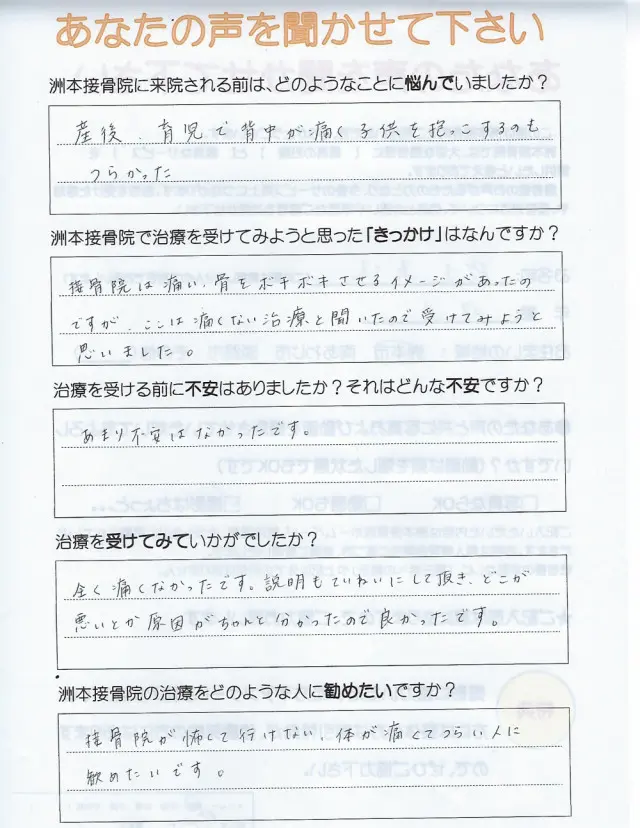 あなたの声を聞かせて下さい
洲本接骨院に来院される前は、どのようなことに悩んでいましたか？
産後、育児で背中が痛く子供を抱っこするのも
つらかった
洲本接骨院で治療を受けてみようと思った「きっかけ」はなんですか？
接骨院は痛い、骨をボキボキさせるイメージがあったの
ですが、ここは痛くない治療と聞いたので受けてみようと
思いました。
治療を受ける前に不安はありましたか？それはどんな不安ですか？
あまり不安はなかったです。
治療を受けてみていかがでしたか？
全く痛くなかったです。説明もていねいにして頂き、どこが
悪いとか原因がちゃんと分かったので良かったです。
洲本接骨院の治療をどのような人に勧めたいですか？
接骨院が怖くて行けない、体が痛くてつらい人に
勧めたいです。